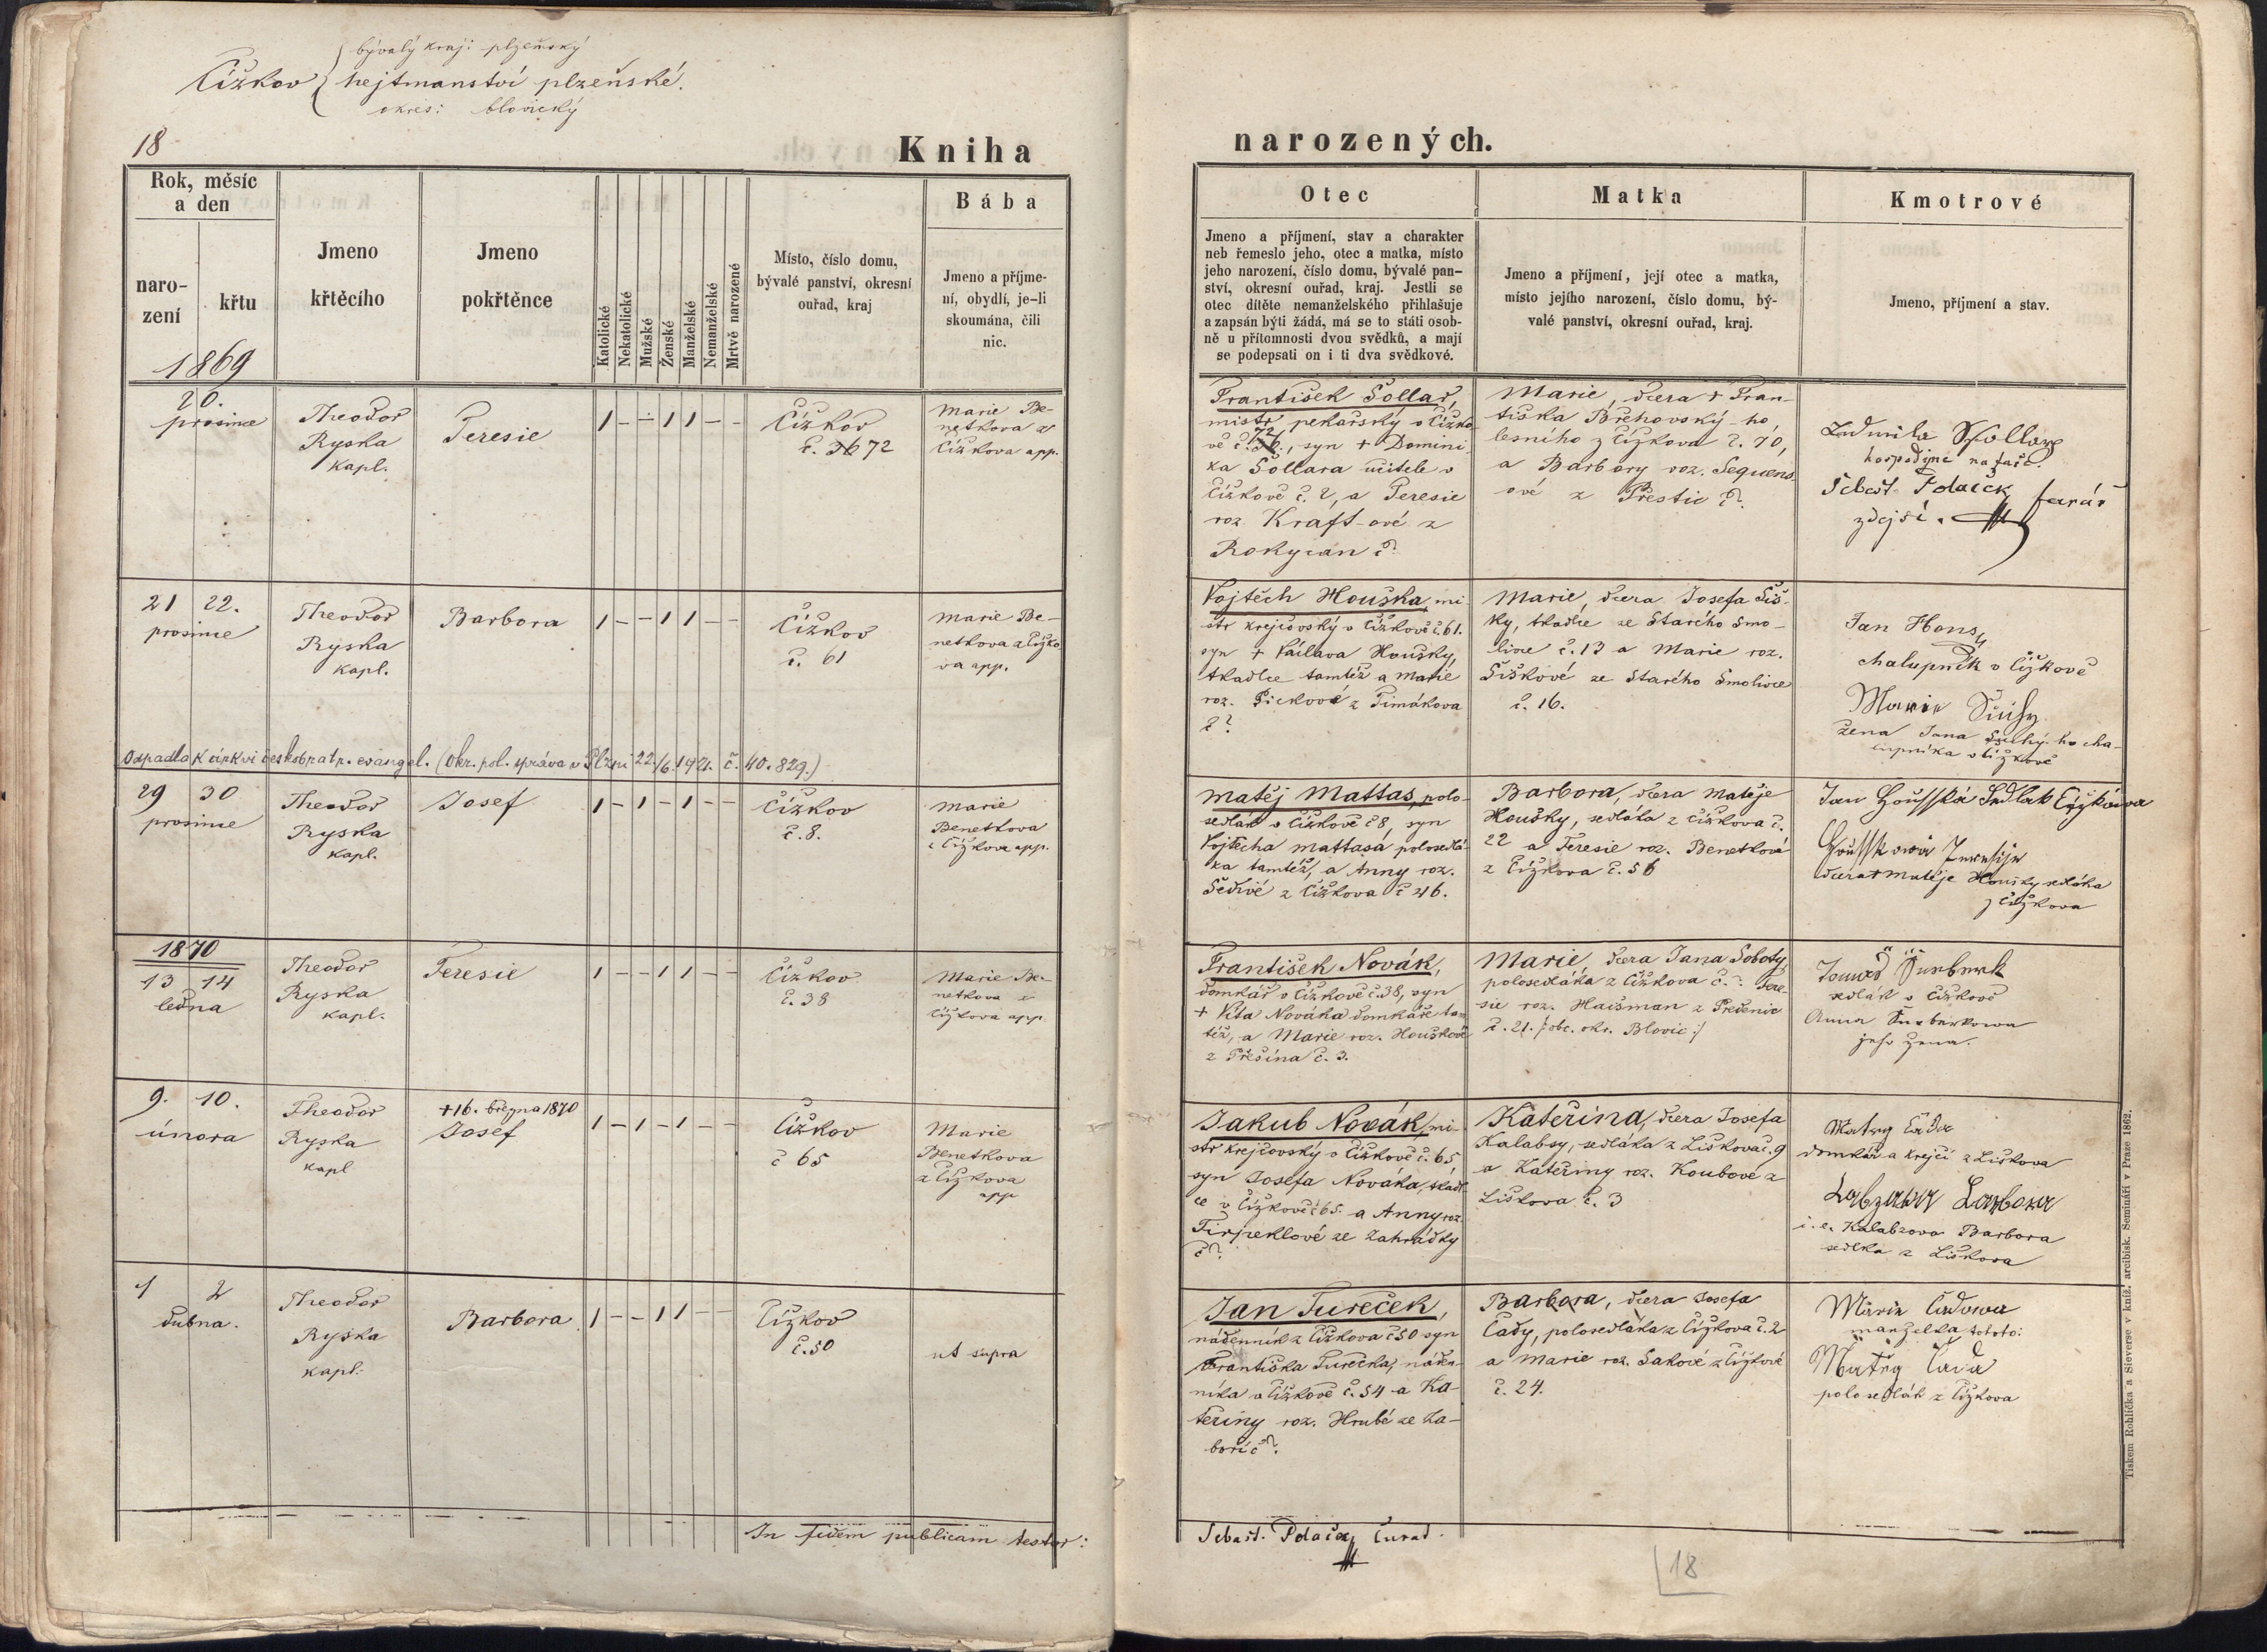 bývalý kraj: plzeňský
Čížkov hejtmanství plzeňské.
okres: blovický
18
Kniha
Rok, měsíc
a den
naro-
zení
křtu
1869
Jmeno
křtěcího
Jmeno
pokřtěnce
Katolické
Nekatolické
Mužské
Ženské
Manželské
Nemanželské
Mrtvě narozené
Místo, číslo domu,
bývalé panství, okresní
ouřad, kraj
Bába
Jmeno a příjme-
ní, obydlí, je-li
skoumána, čili
nic.
20.
prosince
Theodor
Ryska
kapl.
Teresie
1 - - 1 1 - -
Čížkov
č. 36 72
Marie Be-
netkova z
Čížkova app.
21 22.
prosince
Theodor
Ryska
kapl.
Barbora
1 - - 1 1 - -
Čížkov
č. 61
Marie Be-
netkova z Čížko
va app.
Odpadla k církvi českobratr. evangel. (Okr. pol. správa v Plzni 22./6. 1921. č. 40.829.)
29 30
prosince
Theodor
Ryska
kapl.
Josef
1 - 1 - 1 - -
Čížkov
č. 8.
Marie
Benetkova
z Čížkova app.
1870
13 14
ledna
Theodor
Ryska
kapl.
Teresie
1 - - 1 1 - -
Čížkov
č. 38
Marie Be-
netkova z
Čížkova app.
9. 10.
února
Theodor
Ryska
kapl
+16. března 1870
Josef
1 - 1 - 1 - -
Čížkov
č 65
Marie
Benetkova
z Čížkova
app
1 2
dubna.
Theodor
Ryska
kapl.
Barbora
1 - - 1 1 - -
Čížkov
č. 50
ut supra
In fidem publicam testor:
narozených.
Otec
Jmeno a příjmení, stav a charakter
neb řemeslo jeho, otec a matka, místo
jeho narození, číslo domu, bývalé pan-
ství, okresní ouřad, kraj. Jestli se
otec dítěte nemanželského přihlašuje
a zapsán býti žádá, má se to státi osob-
ně u přítomnosti dvou svědků, a mají
se podepsati on i ti dva svědkové.
Matka
Jmeno a příjmení, její otec a matka,
místo jejího narození, číslo domu, bý-
valé panství, okresní ouřad, kraj.
Kmotrové
Jmeno, příjmení a stav.
František Šollar,
mistr pekařský v Čížko
vě č. 72, syn + Domini
ka Šollara učitele v
Čížkově č. 2, a Teresie
roz. Kraft-ové z
Rokycan č?
Marie, dcera + Fran-
tiška Břehovský-ho,
lesního z Čížkova č. 70,
a Barbory roz. Sequens
ové z Přestic č?
Ludmila
hospodyně na faře.
Šebest. Polaček farář
zdejší.
Vojtěch Houška, mi
str krejčovský v Čížkově č. 61.
syn + Václava Houšky,
tkadlce tamtéž a Marie
roz. Pickové z Timákova
č?
Marie, dcera Josefa Šiš-
ky, tkadlce ze Starého Smo-
livce č. 13 a Marie roz.
Šiškové ze Starého Smolivce
č. 16.
Jan Hons
chalupník v Čížkově
Marie Suchy
žena Jana Suchý-ho cha-
lupníka v Čížkově
Matěj Mattas, polo-
sedlák v Čížkově č 8, syn
Vojtěcha Mattasa polosedlá-
ka tamtéž, a Anny roz.
Šedivé z Čížkova č 46.
Barbora, dcera Matěje
Houšky, sedláka z Čížkova č.
22 a Teresie roz. Benetkové
z Čížkova č. 56
Jan Housska Sedlak
dcera + Matěje Houšky sedláka
z Čížkova
František Novák,
domkář v Čížkově č. 38, syn
+ Víta Nováka domkáře tam
též, a Marie roz. Houškové
z Přešína č. 3.
Marie, dcera Jana Soboty
polosedláka z Čížkova č. ? Tere-
sie roz. Haisman z Předenic
č. 21. /: obc. okr. Blovic :/
sedlák v Čížkově
Anna
jeho žena.
Jakub Novák, mi-
str krejčovský v Čížkově č. 65
syn Josefa Nováka, tkadl
ce v Čížkově č 65. a Anny roz.
Tirpeklové ze Zahrádky
č?
Kateřina, dcera Josefa
Kalabzy, sedláka z Liškova č. 9
a Kateřiny roz. Koubové z
Liškova č. 3
domkář a krejčí z Liškova
i. e. Kalabzova Barbora
sedlka z Liškova
Jan Tureček,
nádenník z Čížkova č 50 syn
Františka Turečka, náden-
níka v Čížkově č. 54 a Ka-
teřiny roz. Hrubé ze Za-
boří č?.
Barbora, dcera Josefa
Čady, polosedláka z Čížkova č. 2
a Marie roz. Sakové z Čížkově
č. 24.
Maria Čadowa
manželka tohoto:
Čada
polosedlák z Čížkova
Sebast. Polaček Curat.
18
Tiskem Rohlíčka a Sieverse v kníž. arcibisk. Semináři v Praze 1862.